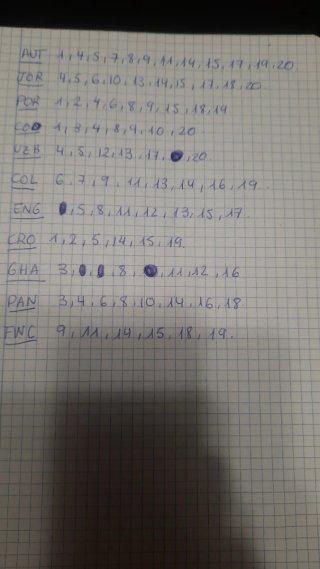 AUT 1, 4, 5, 7, 8, 9, 11, 14, 15, 17, 19, 20
JOR 4, 5, 6, 10, 13, 14, 15, 17, 18, 20
POR 1, 2, 4, 6, 8, 9, 15, 18, 19
COD 1, 3, 4, 8, 9, 10, 20
UZB 4, 5, 12, 13, 17, 20.
COL 6, 7, 9, 11, 13, 14, 16, 19.
ENG 5, 8, 11, 12, 13, 15, 17.
CRO 1, 2, 5, 14, 15, 19.
GHA 3, 8, 11, 12, 16
PAN 3, 4, 6, 8, 10, 14, 16, 18
FWC 9, 11, 14, 15, 18, 19.